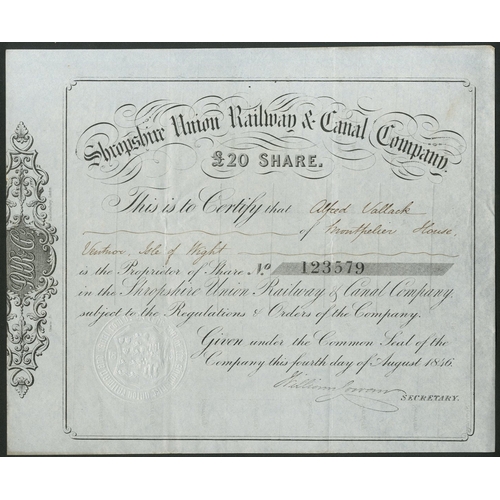 Shropshire Union Railway & Canal Company.
£20 SHARE.
This is to Certify that Alfred Vallack
of Montpelier House,
Ventnor, Isle of Wight
is the Proprietor of Share No. 123579
in the Shropshire Union Railway & Canal Company,
subject to the Regulations & Orders of the Company.
Given under the Common Seal of the
Company this fourth day of August 1846.
SECRETARY.